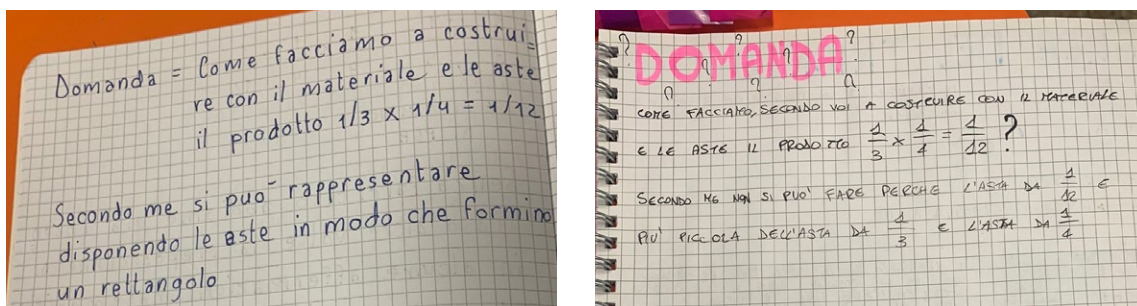 Domanda = Come facciamo a costrui=
re con il materiale e le aste
il prodotto 1/3 x 1/4 = 1/12
Secondo me si può rappresentare
disponendo le aste in modo che formino
un rettangolo
? ? ? ?
DOMANDA
? ? ? ?
COME FACCIAMO, SECONDO VOI A COSTRUIRE CON IL MATERIALE
E LE ASTE IL PRODOTTO 1/3 x 1/4 = 1/12 ?
SECONDO ME NON SI PUO' FARE PERCHE L'ASTA DA 1/12 E
PIU' PICCOLA DELL'ASTA DA 1/3 E L'ASTA DA 1/4